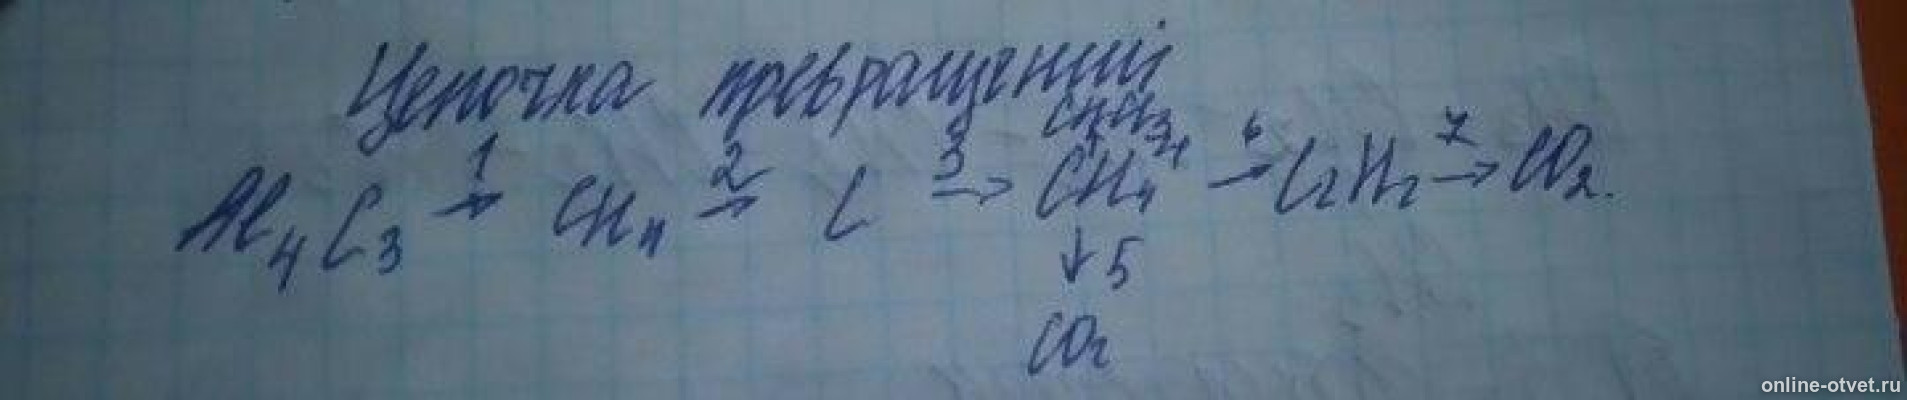 Цепочка превращений
Al4C3 1→ CH4 2→ C 3→ CH4 6→ C2H2 7→ CO2.
4
↓ 5
CO2
online-otvet.ru